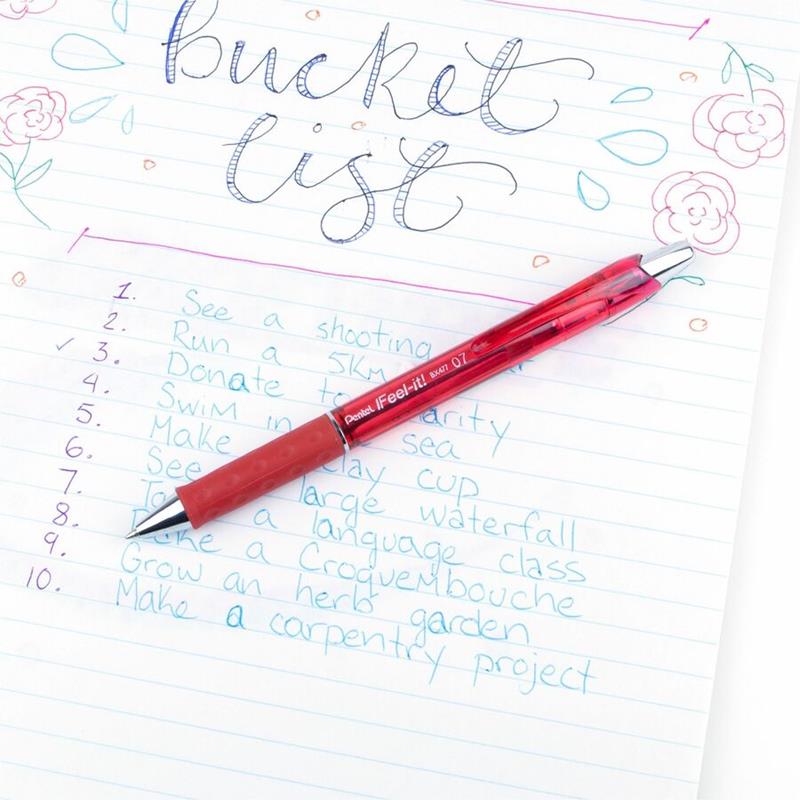 bucket
list
1. See a shooting
2. Run a 5Km
✓ 3. Donate to
4. Swim in sea
5. Make cup
6. See large waterfall
7. a language class
8. a Croquembouche
9. Grow an herb garden
10. Make a carpentry project
Pentel iFeel-it! BX477 07